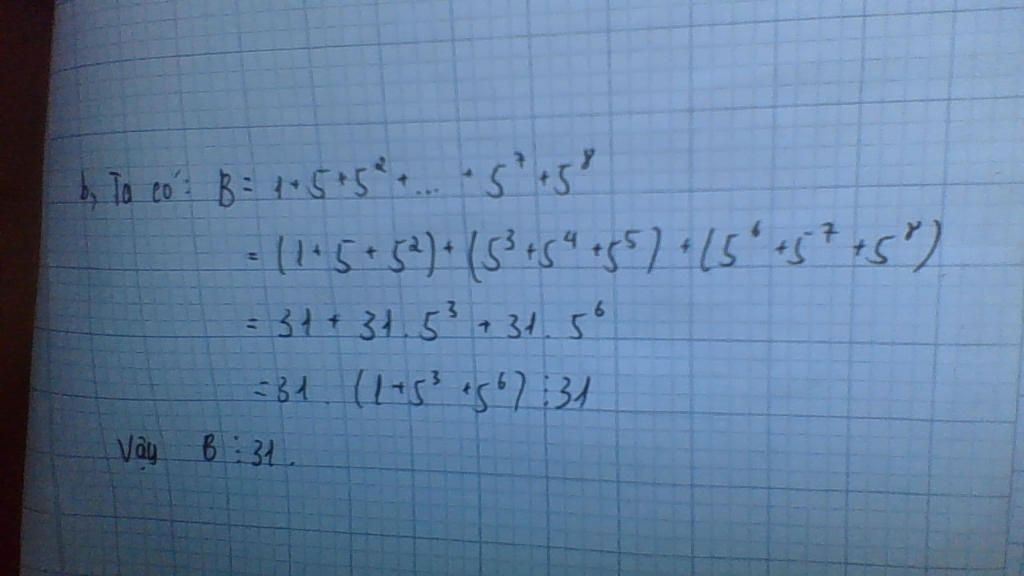 b, Ta có: B = 1 + 5 + 5² + ... + 5⁷ + 5⁸
= (1 + 5 + 5²) + (5³ + 5⁴ + 5⁵) + (5⁶ + 5⁷ + 5⁸)
= 31 + 31 . 5³ + 31 . 5⁶
= 31 . (1 + 5³ + 5⁶) ⋮ 31
Vậy B ⋮ 31.